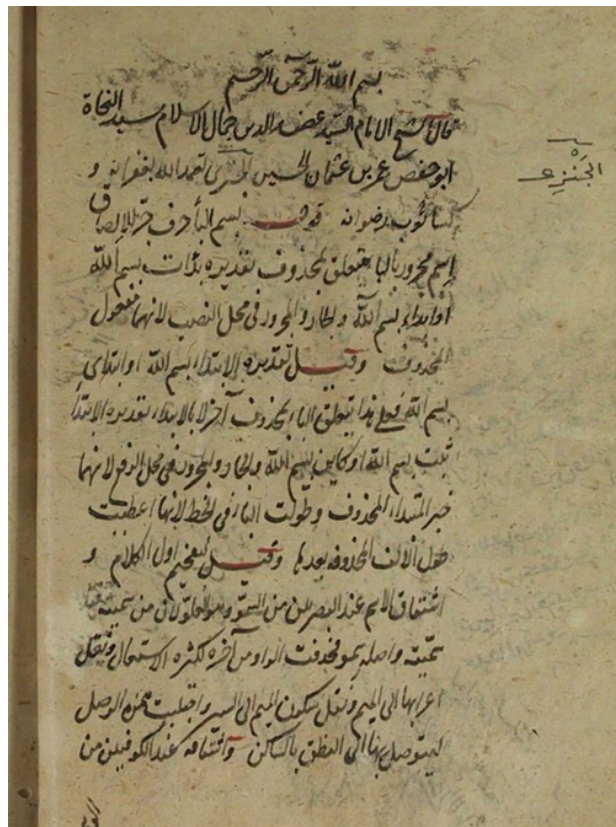 بسم الله الرحمن الرحيم
قال الشيخ الامام السيد عضد الدين جمال الاسلام سيد النحاة
ابو حفص عمر بن عثمان الحسين الجنزى تغمده الله بغفرانه و
كساه ثوب رضوانه قوله بسم البأ حرف جر للالصاق
اسم مجرور بالبا متعلق بمحذوف تقديره بدات بسم الله
او ابتداء بسم الله والجار والمجرور فى محل النصب لانهما مفعول
المحذوف وقيل تقديره الابتداء بسم الله او ابتداى
بسم الله فعلى هذا يتعلق الباء بمحذوف آخر لا بالابتداء تقديره الابتداء
ثبت بسم الله او كاين بسم الله والجار والمجرور فى محل الرفع لانهما
خبر المبتداء المحذوف وطولت الباء فى الخط لانها اعطيت
طول الالف المحذوفه بعدها وقيل لتفخيم اول الكلام و
اشتقاق الاسم عند البصريين من السمو وهو العلو لان من سميته
واصله سمو فحذفت الواو من آخره لكثرة الاستعمال ونقل
اعرابها الى الميم ونقل سكون الميم الى السين واجتلبت همزه الوصل
ليتوصل بها الى النطق بالساكن واشتقاقه عند الكوفيين من
الجَنْزِى